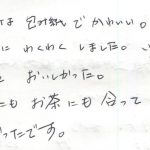 は 包み紙で かわいい。
に わくわく しました。
おいしかった。
にも お茶にも 合って
ったです。